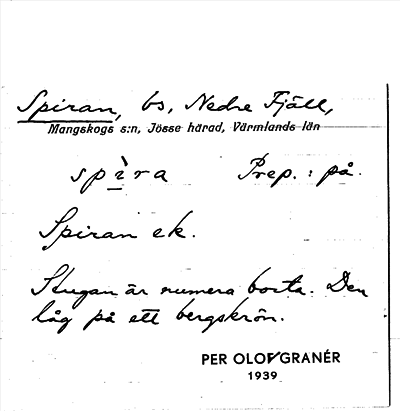 Spiran, bs, Nedre Fjäll,
Mangskogs s:n, Jösse härad, Värmlands län
spìra Prep.: på.
Spiran ek.
Stugan är numera borta. Den
låg på ett bergskrön.
PER OLOF GRANÉR
1939